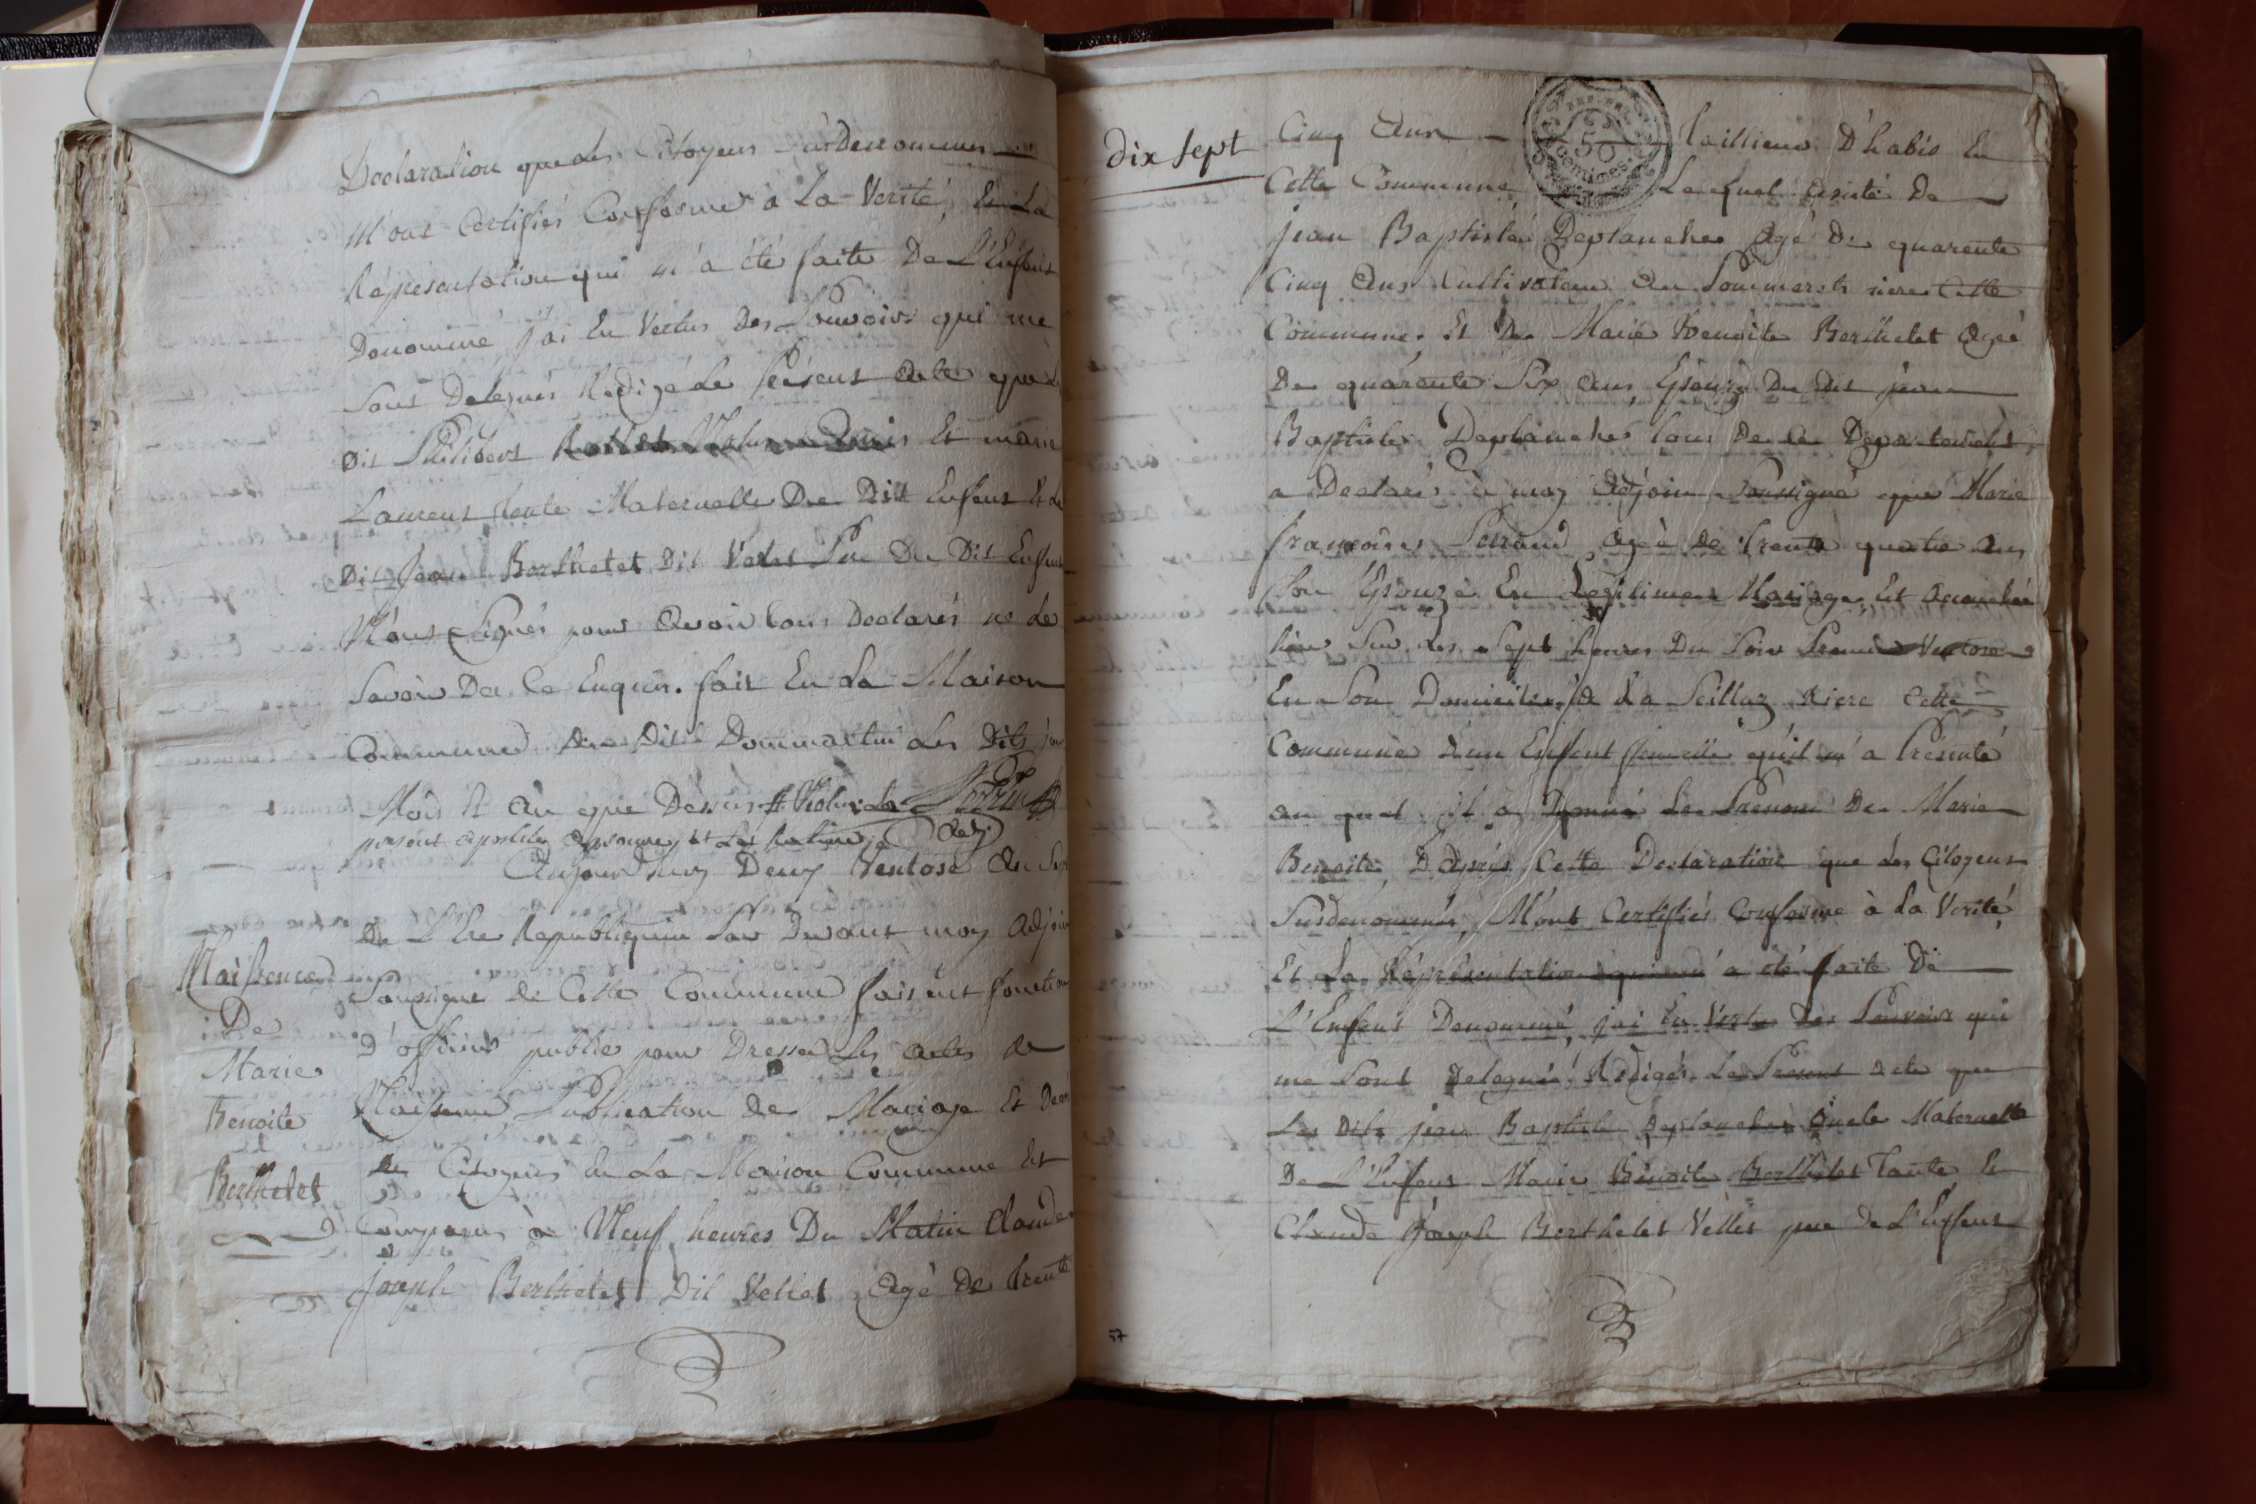 Declaration que les Citoyens susdenommes
M'ont Certifiés Conforme a La Verité, Et La
Répresentation qui m'a été faite De L'Enfant
Denommé j'ai En Vertus Des Pouvoirs qui me
Sont Delegués Redigé Le Présent acte que Le
Dit Philibert Et marie
Laurent tente Maternelle Du Dit Enfent Et Le
Dit Jean Berthelet Dit Vellet Pere Du Dit Enfent
N'ont Signés pour avoir tous Declarés ne Le
Savoir De Ce Enquis. fait En La Maison
Commune Du Dit Dommartin Les Dits jour
Mois Et an que Dessus
present
Aujourd'huy Deux Ventose an Sept
De L'Ere Republiquine Par Devant moy Adjoint
Soussigne de Cette Commune faisent fonction
D'officier public pour Dresser Les actes de
Naissence, Publication de Mariage Et Decès
des Citoyens En La Maison Commune Est
Comparus à Neuf heures Du Matin Claude
Joseph Berthelet Dit Vellet agé De trente
Naissence
De
Marie
Benoite
Berthelet
dix sept
Cinq Ans tailleur D'habis En
Cette Commune Lequel assisté De
jean Baptiste Deplanche Agé De quarente
Cinq Ans Cultivateur Au riere Cette
Commune. Et De Marie Benoite Berthelet Agée
De quarente Six ans, Epouze Du dit jean
Baptiste Deplanche tous De Ce Departement,
a Declaré à moy Adjoint Soussigné que Marie
françoise agée de trente quatre Ans
Son Epouze En Legitime Mariage, Est accouchée
hier Sur Les Sept heures Du Soir Premier Ventose
En Son Domicile, à La riere Cette
Commune D'un Enfent femelle qu'il m'a Presenté
au quel il a Donné Le Prenom De Marie
Benoite, D'Après Cette Declaration que Les Citoyens
Susdenommés, M'ont Certifiés Conforme à La Verité,
Et La Répresentation qui m'a été faite De
L'Enfent Denommé, j'ai En Vertu Des Pouvoirs qui
me Sont Delegués, Redigés Le Present acte que
Les Dits jean Baptiste Deplanche Oncle Maternelle
De L'Enfent Marie Benoite Berthelet Tante Et
Claude Joseph Berthelet Vellet pere de L'Enfent
50
57